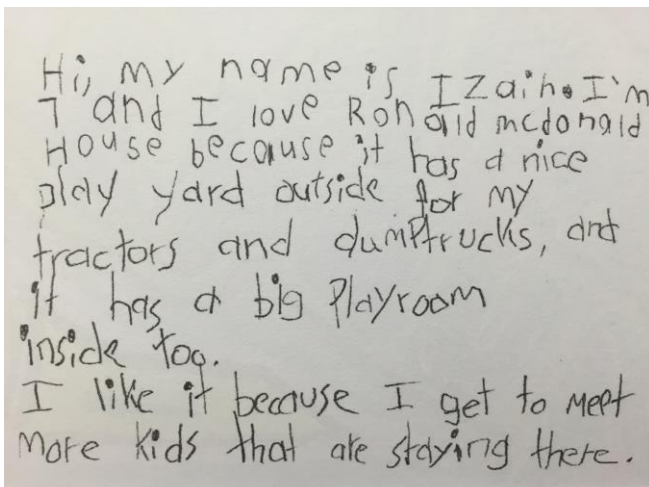 Hi, my name is Izaih. I'm
7 and I love Ronald mcdonald
House because it has a nice
play yard outside for my
tractors and dumptrucks, and
it has a big Playroom
inside too.
I like it because I get to meet
more kids that are staying there.